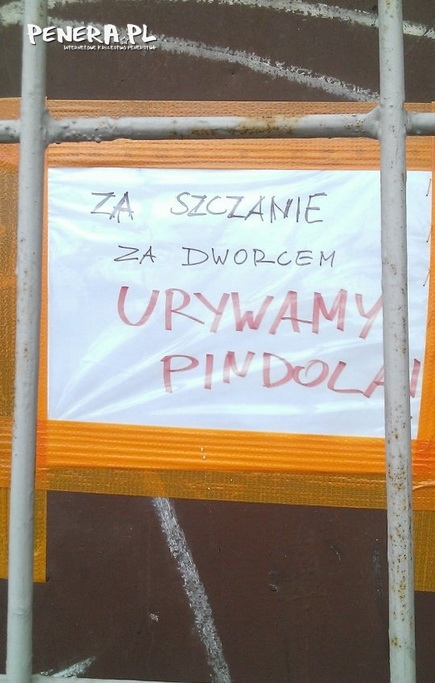 PENERA.PL
INTERNETOWE KRÓLESTWO PENERSTWA
ZA SZCZANIE
ZA DWORCEM
URYWAMY
PINDOLA!